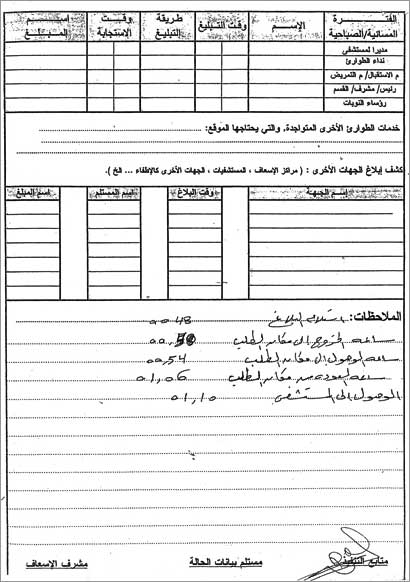 الفترة المسائية/الصباحية	الإسم	وقت التبليغ	طريقة التبليغ	وقت الاستجابة	اسم المبلغ
مديرا لمستشفى
نداء الطوارئ
م الاستقبال/ م التمريض
رئيس/ مشرف/ القسم
رؤساء النوبات
خدمات الطوارئ الأخرى المتواجدة، والتي يحتاجها الموقع:
كشف إبلاغ الجهات الأخرى : ( مراكز الإسعاف ، المستشفيات ، الجهات الأخرى كالإطفاء ... الخ ).
إسم الجهة	وقت البلاغ	اسم المستلم	اسم المبلغ
الملاحظات: استلام البلاغ 00.48
ساعة الخروج الى مكان الطلب 00.50
ساعة الوصول الى مكان الطلب 00.54
ساعة العودة من مكان الطلب 01.06
الوصول الى المستشفى 01.10
متابع التنفيذ	مستلم بيانات الحالة	مشرف الإسعاف